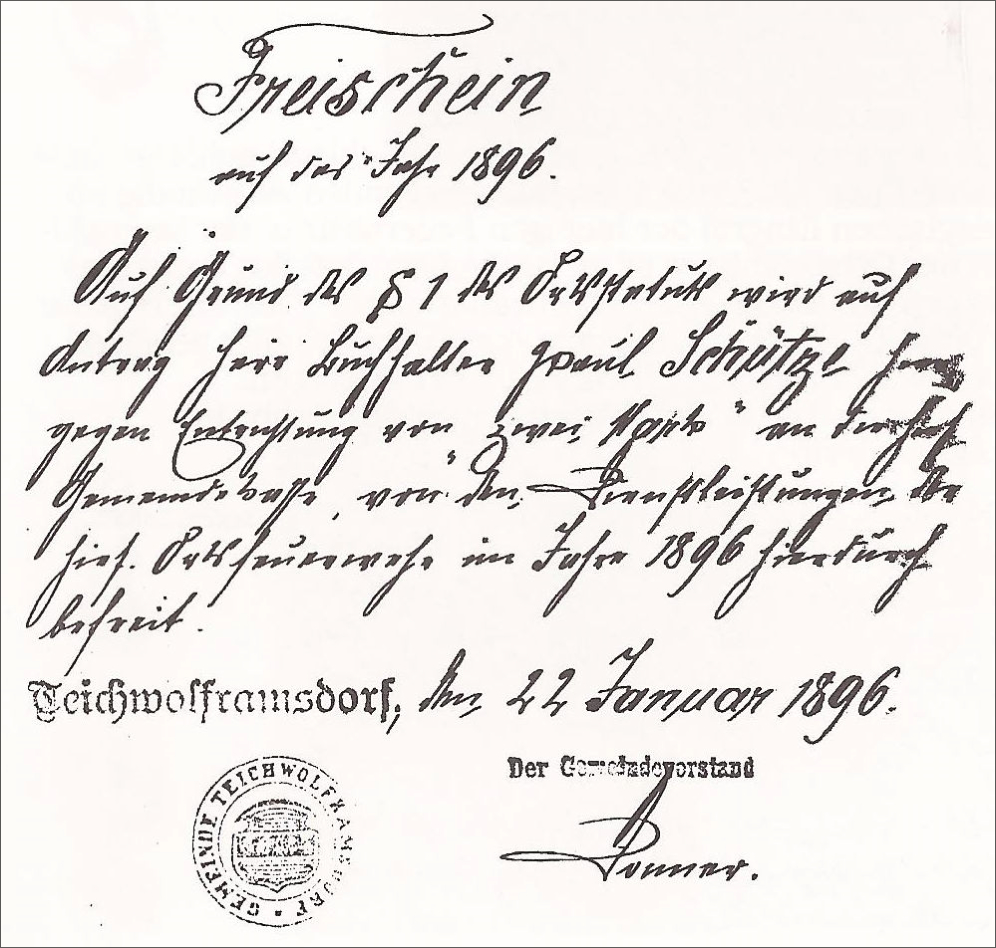 Freischein
auf das Jahr 1896.
Auf Grund des § 1 des Ortsstatuts wird auf
Antrag Herr Buchhalter Paul Schütze
gegen Entrichtung von "zwei Mark" an die
Gemeindekasse, von den Dienstleistungen der
hies. Ortsfeuerwehr im Jahre 1896 hierdurch
befreit.
Teichwolframsdorf, den 22 Januar 1896.
Der Gemeindevorstand
Donner.
GEMEINDE TEICHWOLFRAMSDORF